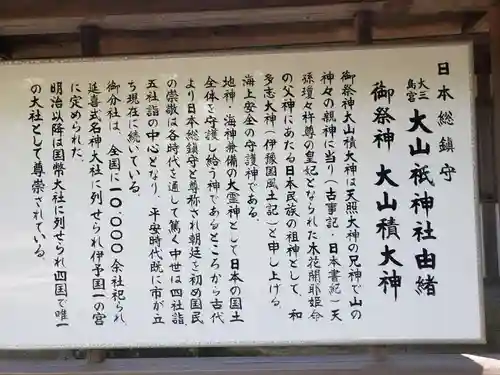 日本総鎮守
大三島宮 大山祇神社由緒
御祭神 大山積大神
御祭神大山積大神は天照大神の兄神で山の
神々の親神に当り(古事記・日本書紀)天
孫瓊々杵尊の皇妃となられた木花開耶姫命
の父神にあたる日本民族の祖神として、和
多志大神(伊豫国風土記)と申し上げる。
海上安全の守護神である。
地神・海神兼備の大霊神として日本の国土
全体を守護し給う神であるところから古代
より日本総鎮守と尊称され朝廷を初め国民
の崇敬は各時代を通して篤く中世は四社詣
五社詣の中心となり、平安時代既に市が立
ち現在に続いている。
御分社は、全国に一〇、〇〇〇余社祀られ
延喜式名神大社に列せられ伊予国一の宮
に定められた。
明治以降は国幣大社に列せられ四国で唯一
の大社として尊崇されている。